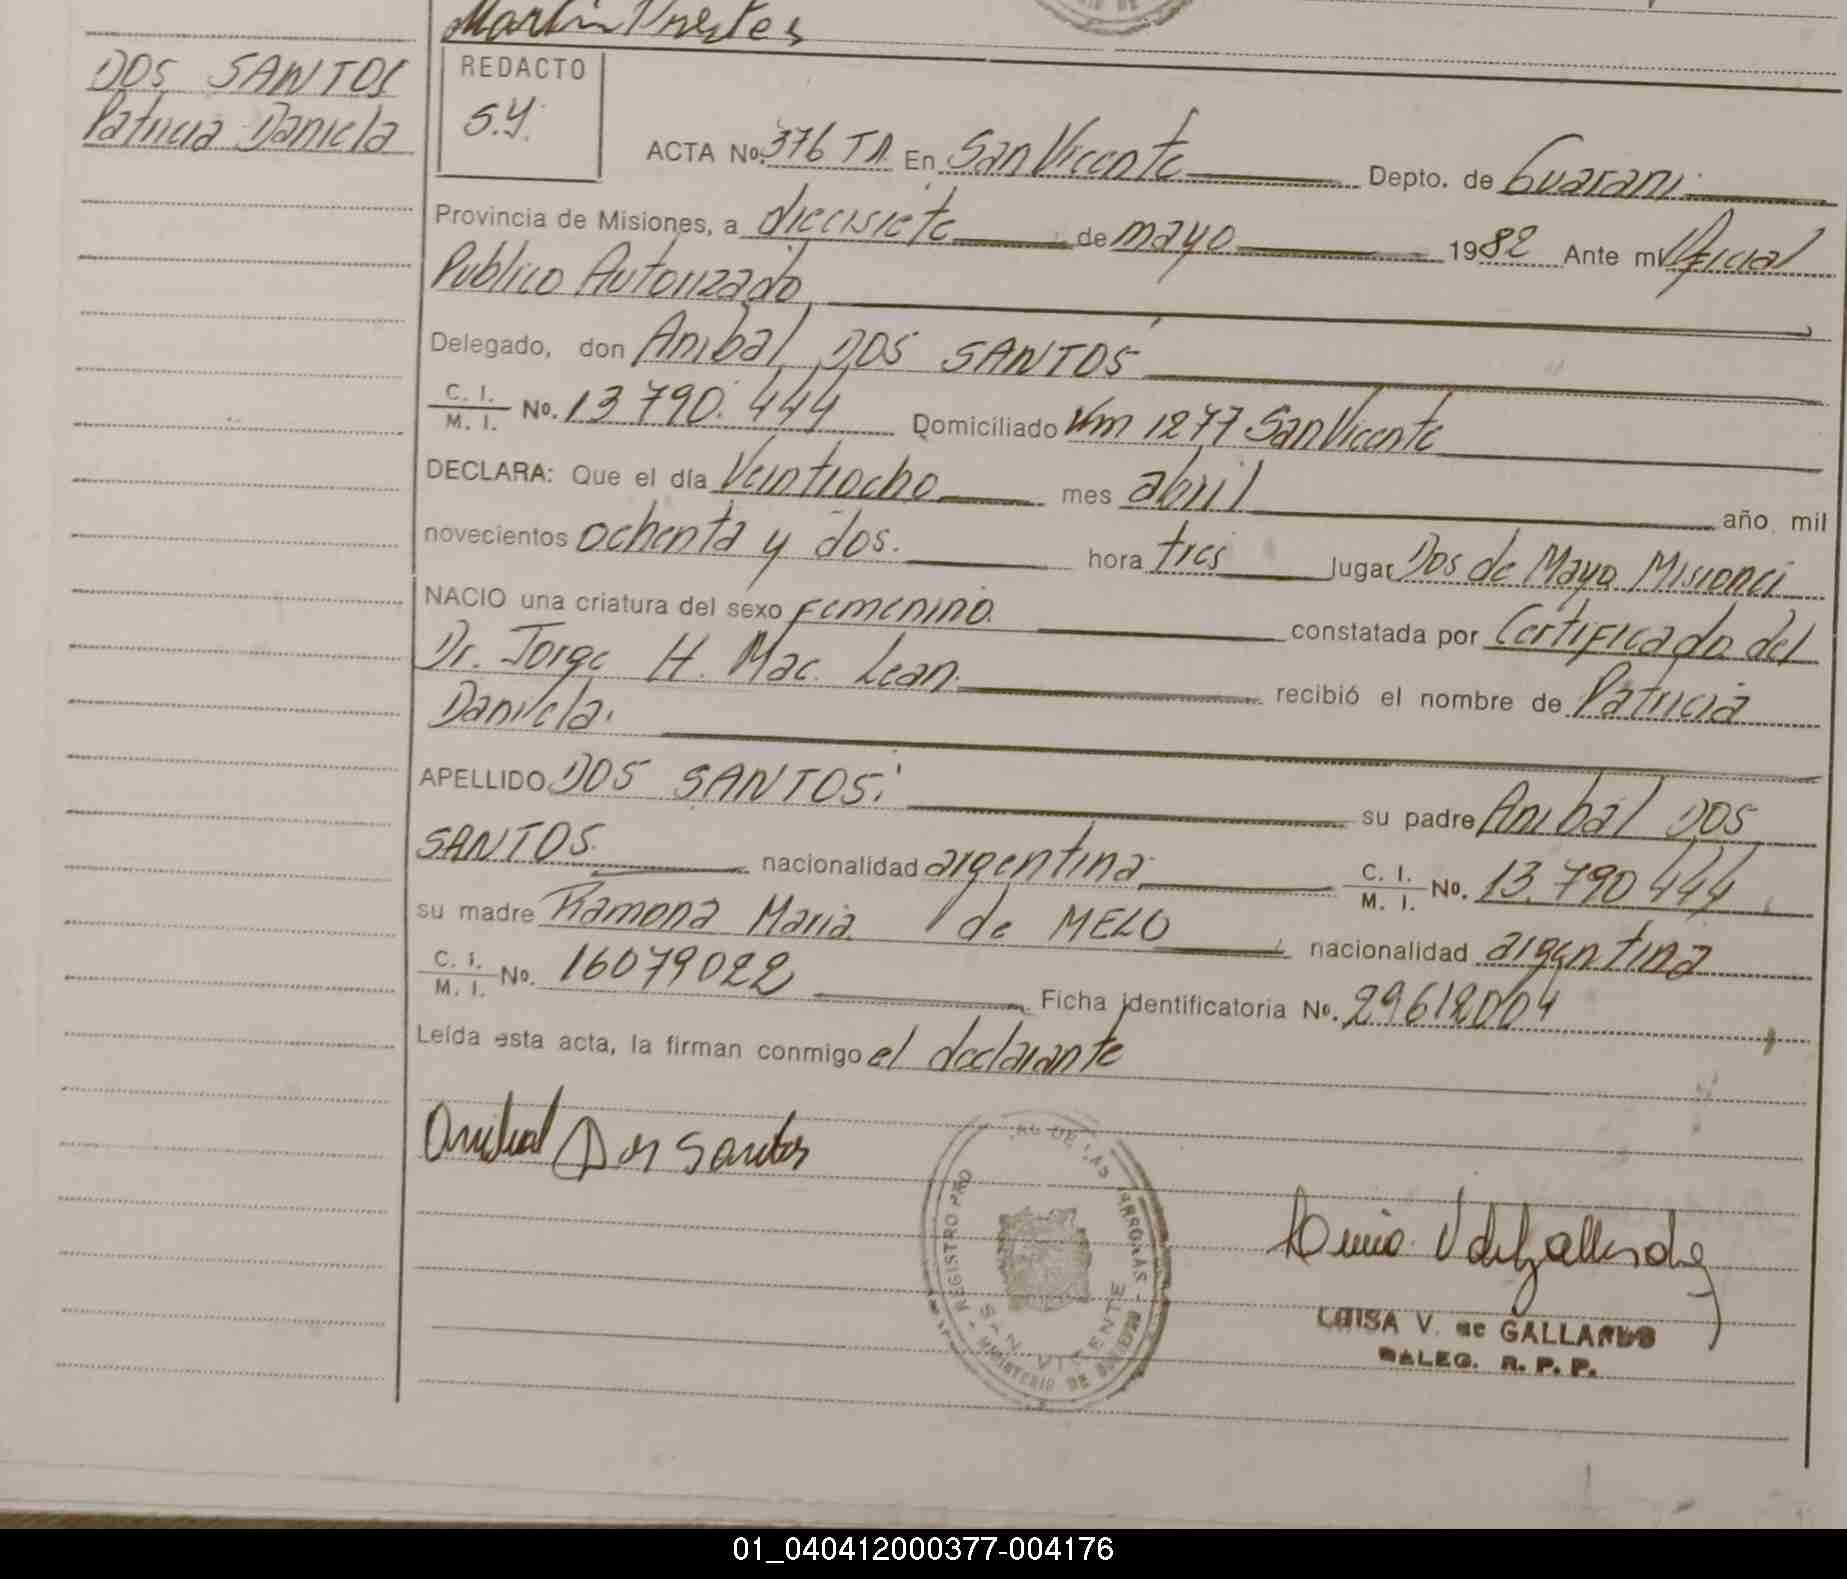 Martin Prestes
DOS SANTOS
Patricia Daniela
REDACTO
S.Y.
ACTA No. 376 TA. En San Vicente Depto. de Guarani
Provincia de Misiones, a diecisiete de mayo 1982 Ante mi Oficial
Publico Autorizado
Delegado, don Anibal DOS SANTOS
C. I. / M. I. No. 13 790. 444 Domiciliado Km 1277 San Vicente
DECLARA: Que el día Veintiocho mes abril año mil
novecientos ochenta y dos. hora tres lugar Dos de Mayo Misiones
NACIO una criatura del sexo Femenino. constatada por Certificado del
Dr. Jorge H. Mac. Lean. recibió el nombre de Patricia
Daniela.
APELLIDO DOS SANTOS. su padre Anibal DOS
SANTOS. nacionalidad argentina C. I. / M. I. No. 13.790 444
su madre Ramona Maria de MELO nacionalidad argentina
C. I. / M. I. No. 16079022 Ficha identificatoria No. 29612004
Leída esta acta, la firman conmigo el declarante
Anibal Dos Santos
REGISTRO PRO DE LAS PERSONAS - MINISTERIO DE GOBIERNO
SAN VICENTE
LUISA V. de GALLARDO
DALEG. R. P. P.
01_040412000377-004176